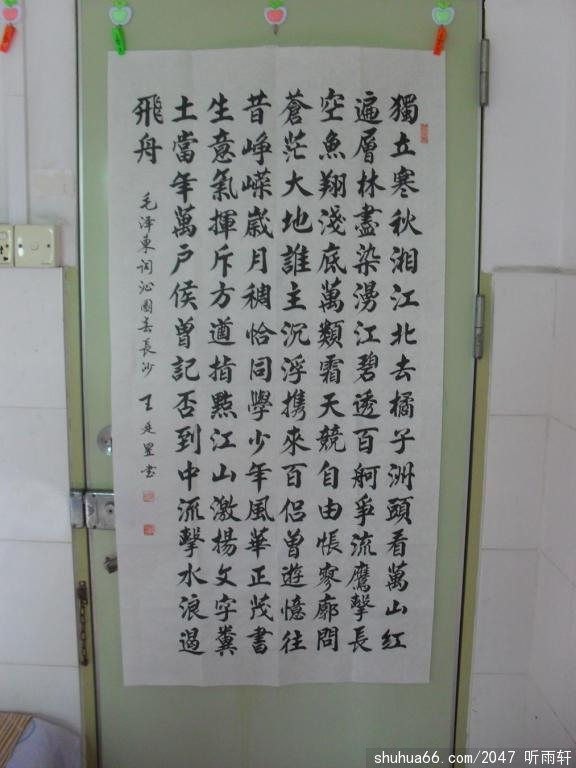 獨立寒秋湘江北去橘子洲頭看萬山红
遍層林盡染漫江碧透百舸爭流鷹擊長
空魚翔淺底萬類霜天競自由悵寥廓問
蒼茫大地誰主沉浮携來百侣曾遊憶往
昔崢嶸歲月稠恰同學少年風華正茂書
生意氣揮斥方遒指點江山激揚文字糞
土當年萬户侯曾記否到中流擊水浪遏
飛舟
毛泽東词沁園春長沙 王书
shuhua66.com/2047 听雨轩